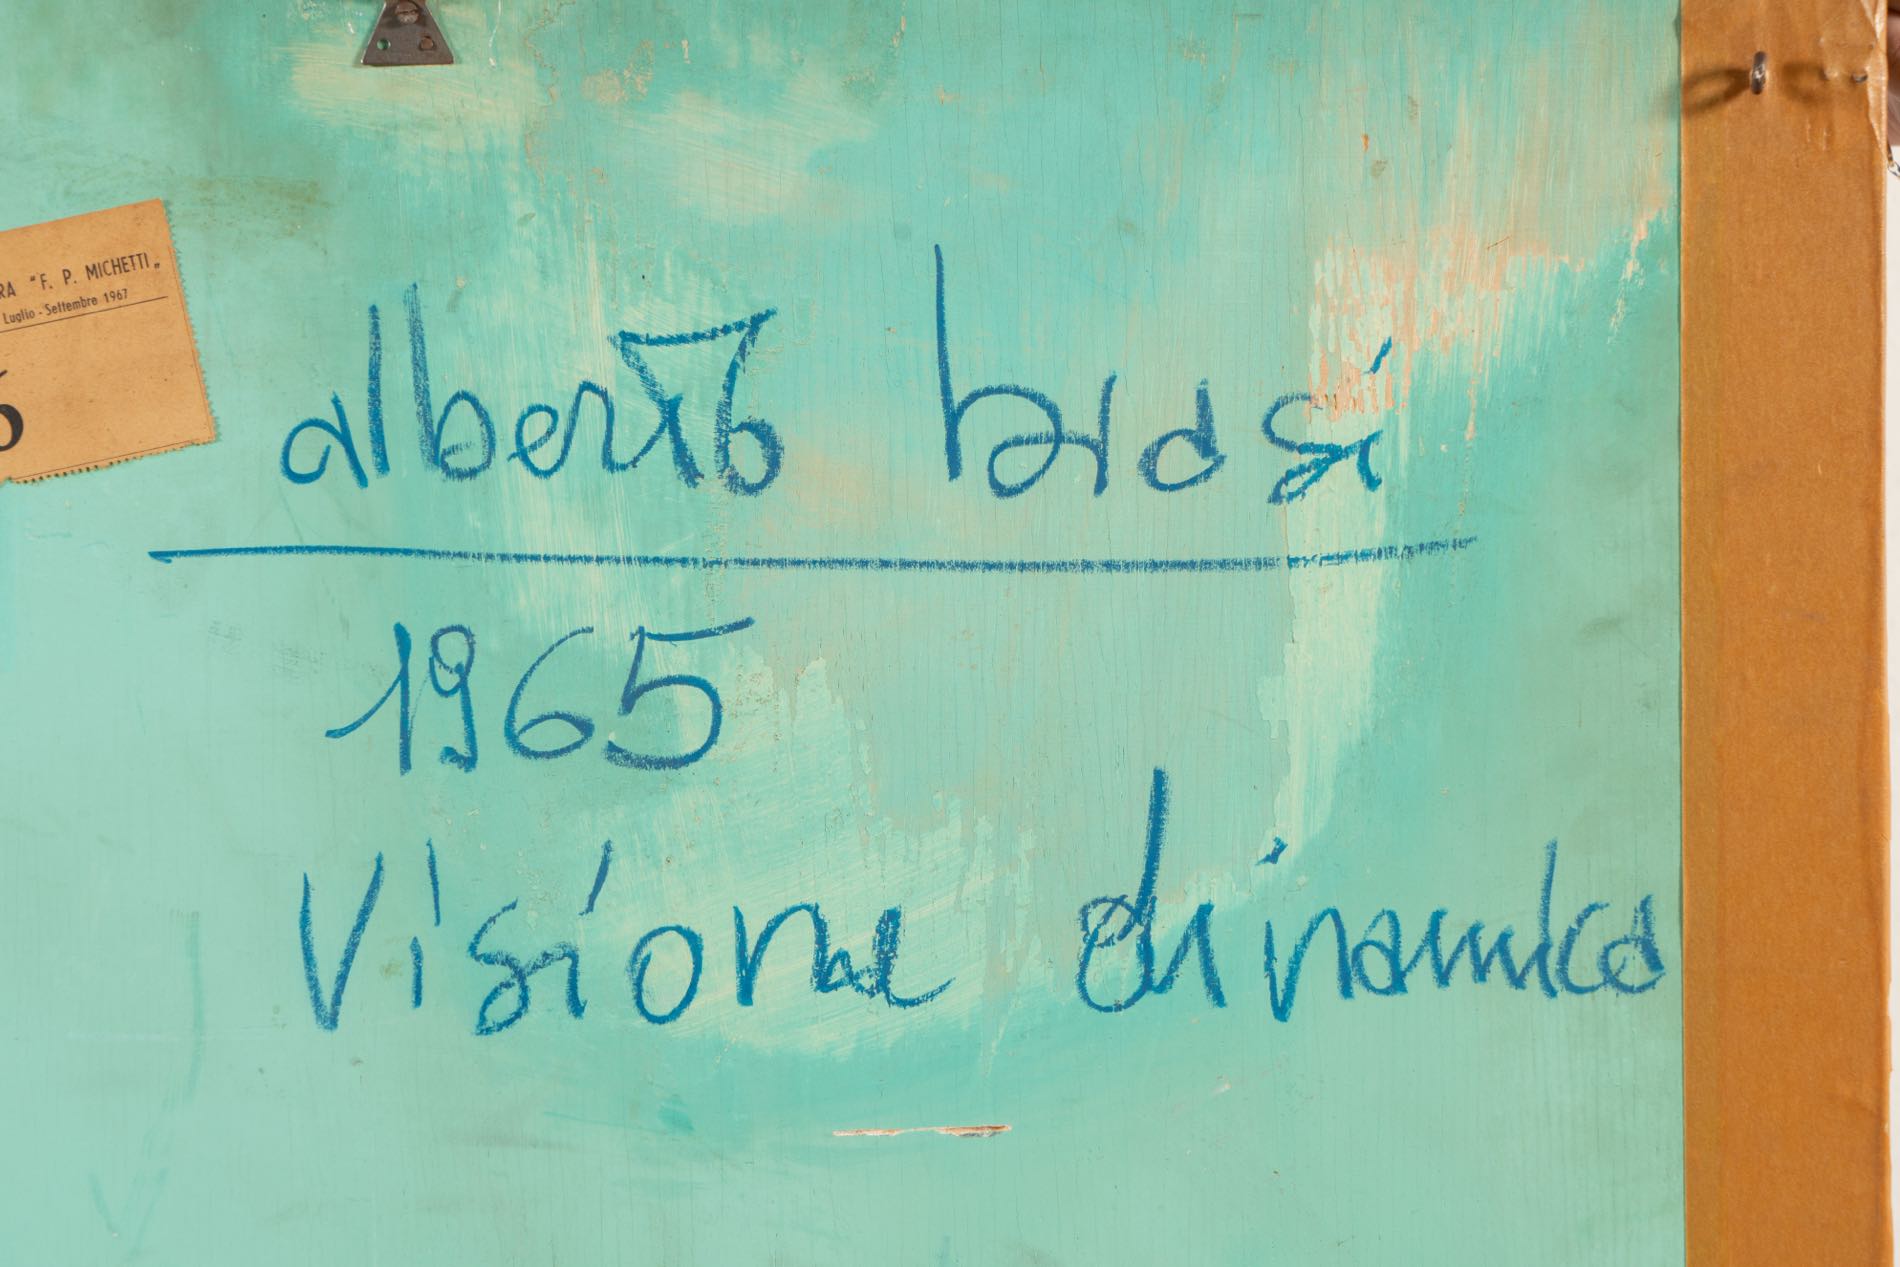 RA "F. P. MICHETTI„
Luglio - Settembre 1967
6
alberto biasi
1965
Visione dinamica